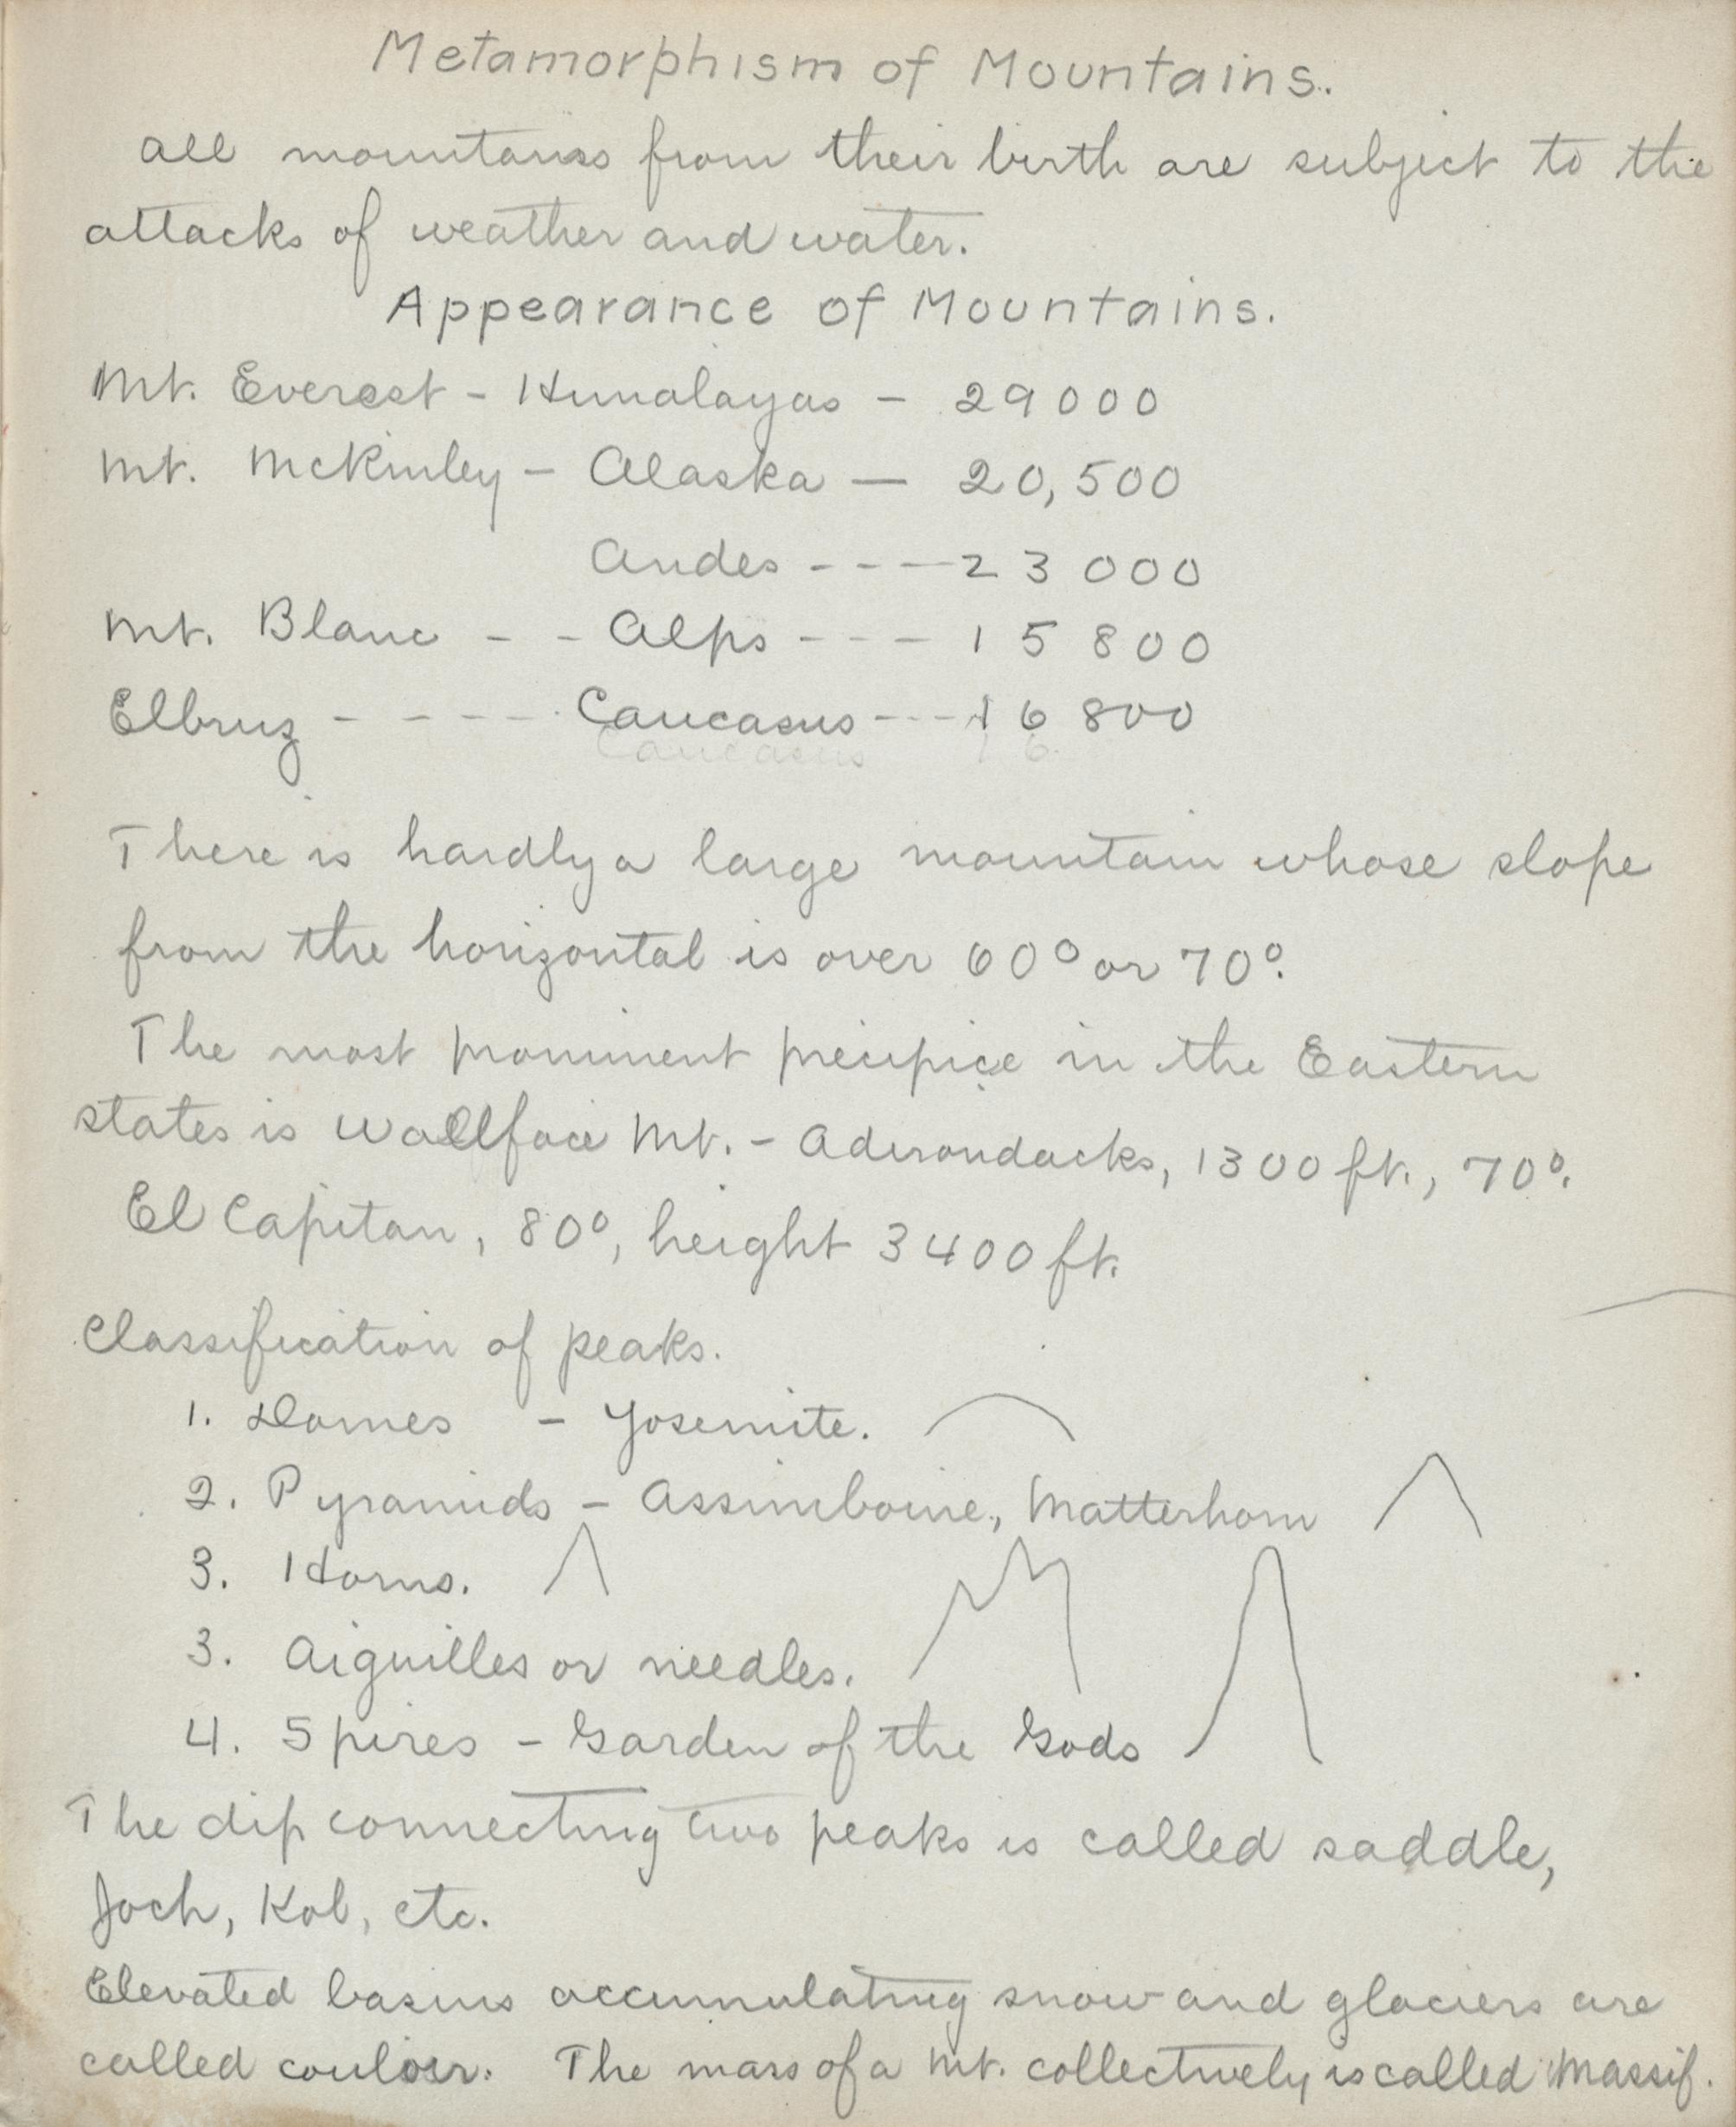 Metamorphism of Mountains.
All mountains from their birth are subject to the
attacks of weather and water.
Appearance of Mountains.
Mt. Everest - Himalayas - 29000
Mt. McKinley - Alaska - 20,500
Andes - - - 23000
Mt. Blanc - - Alps - - - 15800
Elbruz - - - - Caucasus - - - 16800
Caucasus 16
There is hardly a large mountain whose slope
from the horizontal is over 60° or 70°.
The most prominent precipice in the Eastern
states is Wallface Mt. - Adirondacks, 1300 ft., 70°.
El Capitan, 80°, height 3400 ft.
Classification of peaks.
1. Domes - Yosemite.
2. Pyramids - Assiniboine, Matterhorn
3. Horns.
3. Aiguilles or needles.
4. Spires - Garden of the Gods
The dip connecting two peaks is called saddle,
Joch, Kol, etc.
Elevated basins accumulating snow and glaciers are
called couloir. The mass of a Mt. collectively is called Massif.